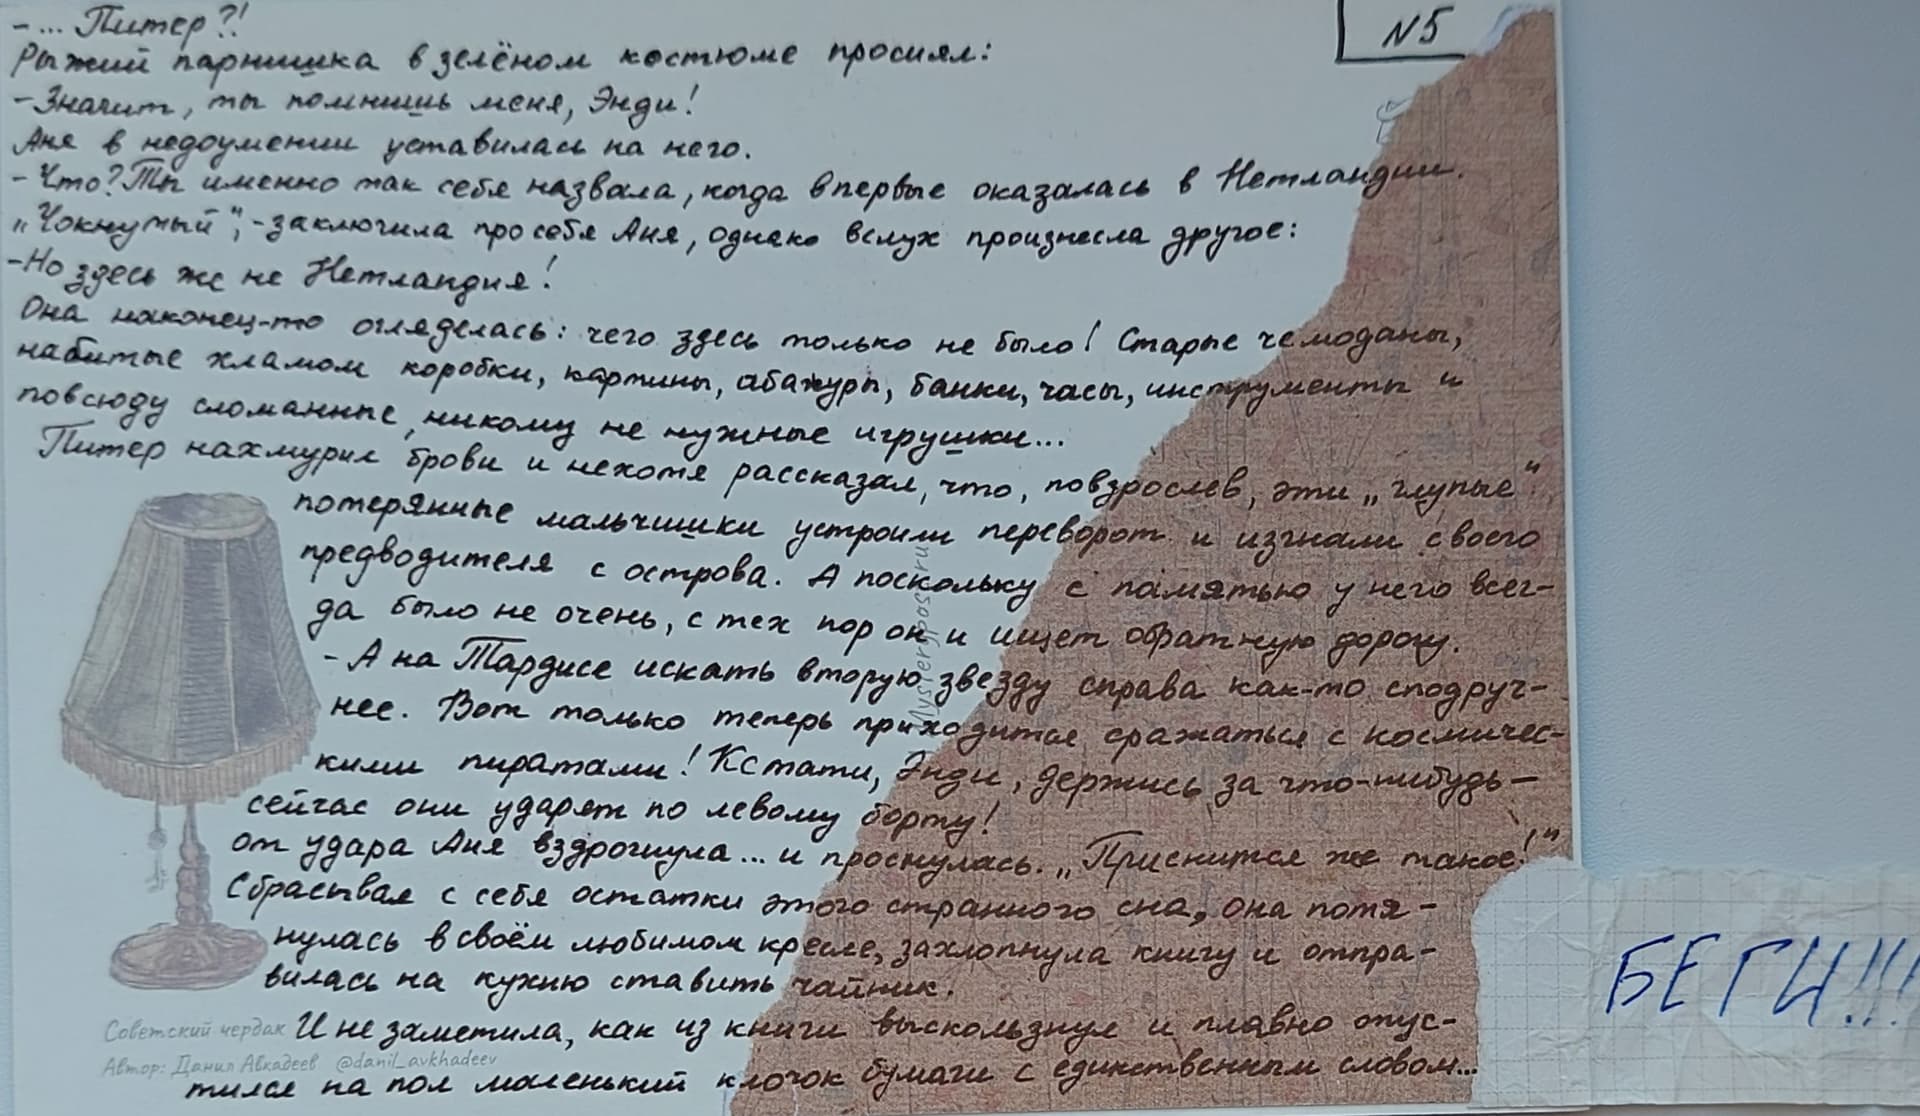 - ... Питер?!
N5
Рыжий парнишка в зелёном костюме просиял:
- Значит, ты помнишь меня, Энди!
Аня в недоумении уставилась на него.
- Что? Ты именно так себя назвала, когда впервые оказалась в Нетландии.
„Чокнутый“, - заключила про себя Аня, однако вслух произнесла другое:
- Но здесь же не Нетландия!
Она наконец-то огляделась: чего здесь только не было! Старые чемоданы,
набитые хламом коробки, картины, абажуры, банки, часы, инструменты и
повсюду сломанные, никому не нужные игрушки...
Питер нахмурил брови и нехотя рассказал, что, повзрослев, эти „глупые“
потерянные мальчишки устроили переворот и изгнали своего
предводителя с острова. А поскольку с памятью у него всег-
да было не очень, с тех пор он и ищет обратную дорогу.
- А на Тардисе искать вторую звезду справа как-то сподруч-
нее. Вот только теперь приходится сражаться с космичес-
кими пиратами! Кстати, Энди, держись за что-нибудь -
сейчас они ударят по левому борту!
От удара Аня вздрогнула... и проснулась. „Приснится же такое!“
Сбрасывая с себя остатки этого странного сна, она потя-
нулась в своём любимом кресле, захлопнула книгу и отпра-
вилась на кухню ставить чайник.
И не заметила, как из книги выскользнул и плавно опус-
тился на пол маленький клочок бумаги с единственным словом...
БЕГИ!!!
Советский чердак
Автор: Данил Авхадеев @danil_avkhadeev
Mysterypost.ru